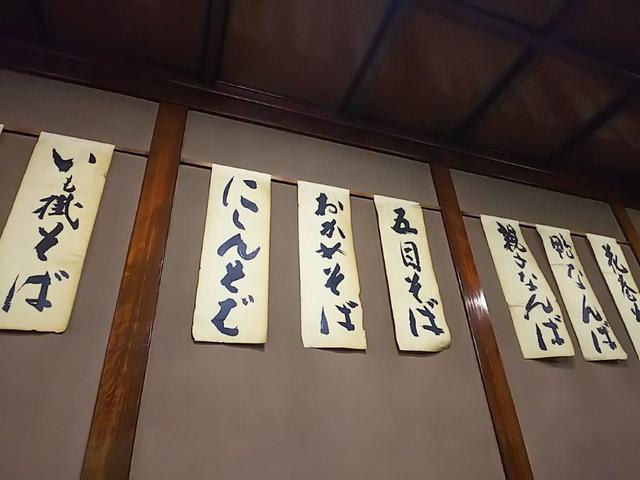 花巻
鴨なんば
親子なんば
五目そば
おかめそば
にしんそば
いも掛そば